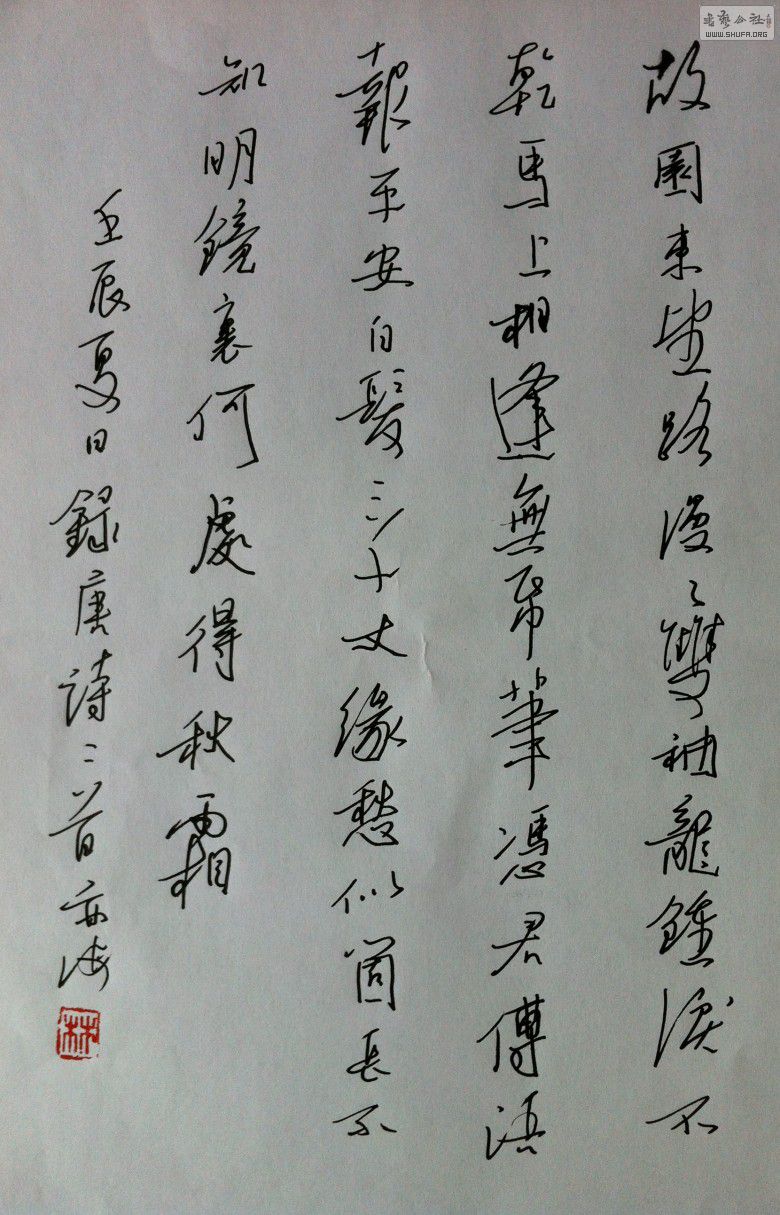 故園東望路漫〻雙袖龍鍾淚不
乾馬上相逢無帋筆憑君傳語
報平安白髮三千丈緣愁似箇長不
知明鏡裏何處得秋霜
壬辰夏日錄唐詩二首亦海
林
書藝公社
WWW.SHUFA.ORG